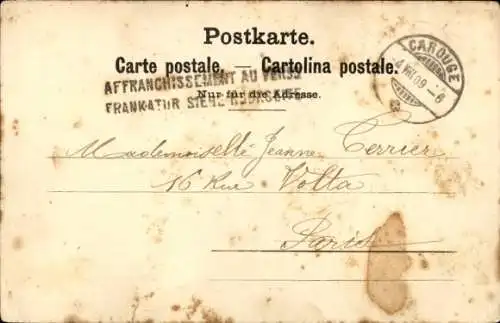 Postkarte.
Carte postale. — Cartolina postale.
AFFRANCHISSEMENT AU VERSO
FRANKATUR SIEHE RÜCKSEITE
Nur für die Adresse.
CAROUGE
4 VIII 09 - 6
Mademoiselle Jeanne Terrier
16 Rue Volta
Paris